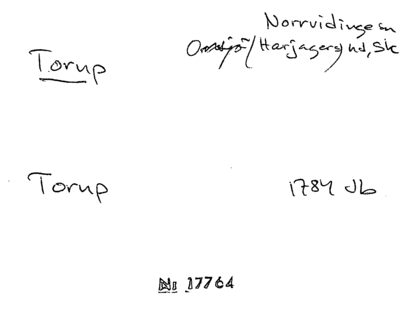 Norrvidinge sn
Torup
Onsjö/Harjagers hd, Sk
Torup
1784 Jb
Nr 17764